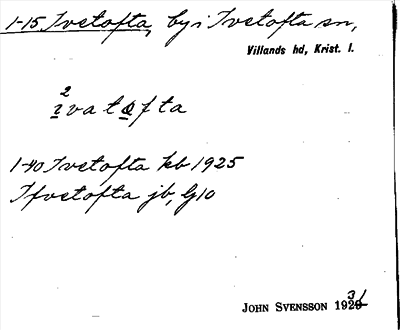 1-15 Ivetofta, by i Ivetofta sn,
Villands hd, Krist. l.
2
ivatofta
1-40 Ivetofta kb 1925
Ifvetofta jb, G10
JOHN SVENSSON 1931